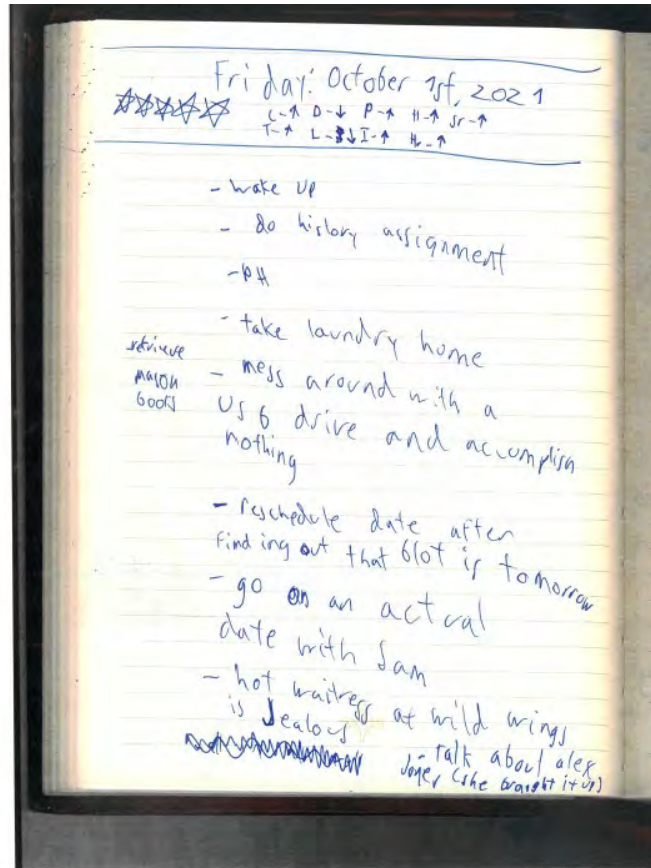 Friday: October 1st, 2021
C-↑ D-↓ P-↑ H-↑ Sr-↑
T-↑ L-↓ I-↑
- wake up
- do history assignment
- PH
- take laundry home
retrieve
mason
books
- mess around with a
USB drive and accomplish
nothing
- reschedule date after
finding out that blot is tomorrow
- go on an actual
date with Sam
- hot waitress at wild wings
is Jealous
- talk about alex
Jones (she braught it up)